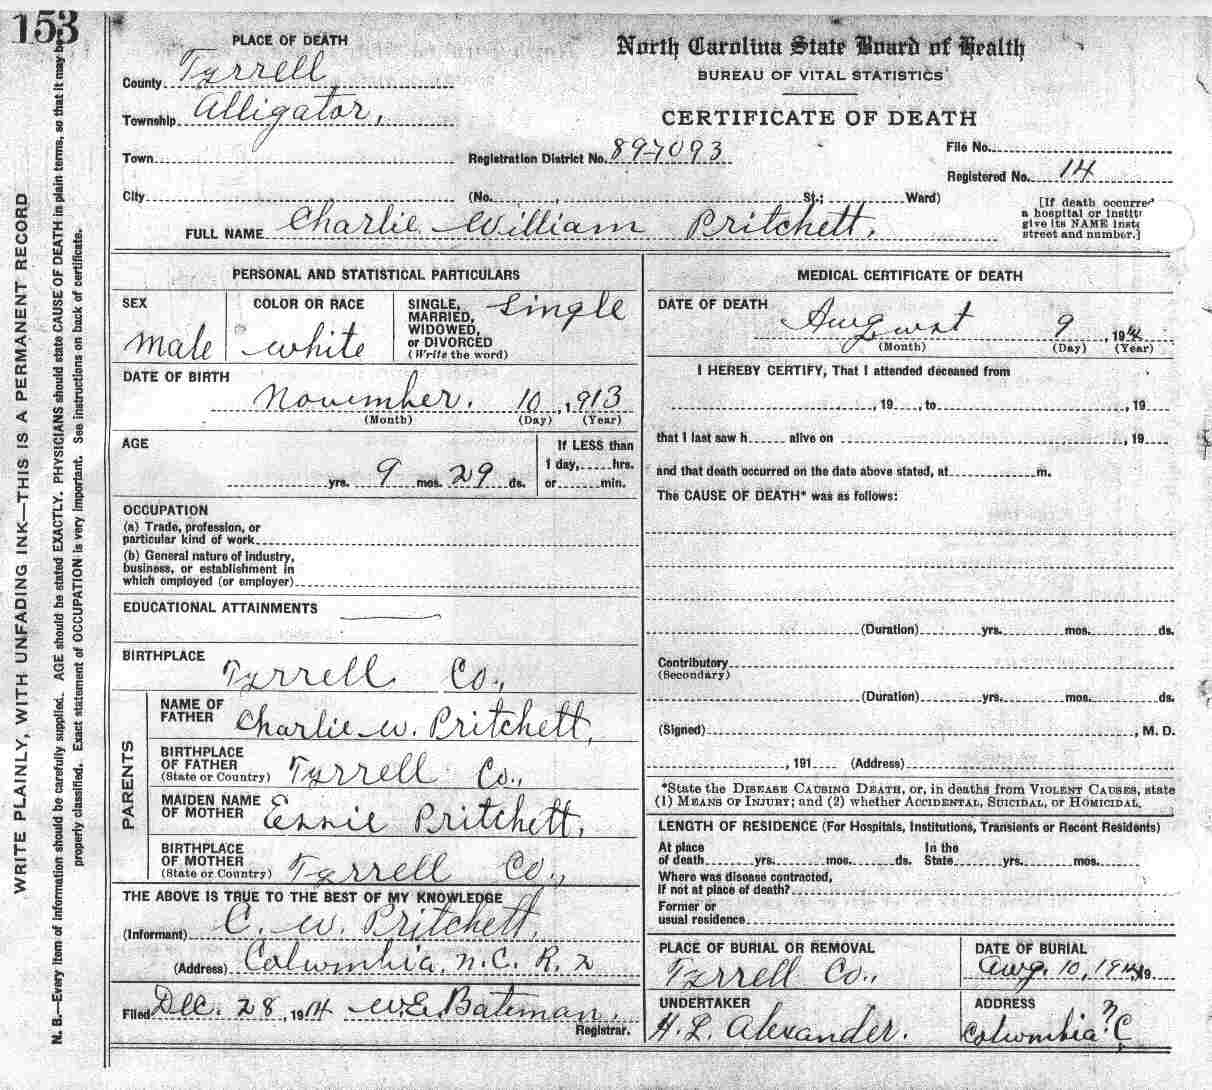 153
WRITE PLAINLY, WITH UNFADING INK—THIS IS A PERMANENT RECORD
N. B.—Every item of information should be carefully supplied. AGE should be stated EXACTLY. PHYSICIANS should state CAUSE OF DEATH in plain terms, so that it may be
properly classified. Exact statement of OCCUPATION is very important. See instructions on back of certificate.
PLACE OF DEATH
County Tyrrell
Township Alligator,
Town
City
North Carolina State Board of Health
BUREAU OF VITAL STATISTICS
CERTIFICATE OF DEATH
Registration District No. 89-7093
File No.
Registered No. 14
(No. , St.; Ward)
[If death occurred
a hospital or institu
give its NAME inste
street and number.]
FULL NAME Charlie William Pritchett,
PERSONAL AND STATISTICAL PARTICULARS
SEX
male
COLOR OR RACE
white
SINGLE,
MARRIED,
WIDOWED,
or DIVORCED
(Write the word)
single
DATE OF BIRTH
November. 10, 1913
(Month) (Day) (Year)
AGE
yrs. 9 mos. 29 ds.
If LESS than
1 day, hrs.
or min.
OCCUPATION
(a) Trade, profession, or
particular kind of work
(b) General nature of industry,
business, or establishment in
which employed (or employer)
EDUCATIONAL ATTAINMENTS
BIRTHPLACE
Tyrrell Co.,
PARENTS
NAME OF
FATHER
Charlie W. Pritchett,
BIRTHPLACE
OF FATHER
(State or Country)
Tyrrell Co.,
MAIDEN NAME
OF MOTHER
Essie Pritchett,
BIRTHPLACE
OF MOTHER
(State or Country)
Tyrrell Co.,
THE ABOVE IS TRUE TO THE BEST OF MY KNOWLEDGE
(Informant) C. W. Pritchett,
(Address) Columbia, N.C. R. 2
Filed Dec. 28, 1914 W.E. Bateman,
Registrar.
MEDICAL CERTIFICATE OF DEATH
DATE OF DEATH
August 9, 1914
(Month) (Day) (Year)
I HEREBY CERTIFY, That I attended deceased from
, 19 , to , 19
that I last saw h alive on , 19
and that death occurred on the date above stated, at m.
The CAUSE OF DEATH* was as follows:
(Duration) yrs. mos. ds.
Contributory
(Secondary)
(Duration) yrs. mos. ds.
(Signed) , M. D.
, 191 (Address)
*State the DISEASE CAUSING DEATH, or, in deaths from VIOLENT CAUSES, state
(1) MEANS OF INJURY; and (2) whether ACCIDENTAL, SUICIDAL, or HOMICIDAL.
LENGTH OF RESIDENCE (For Hospitals, Institutions, Transients or Recent Residents)
At place
of death yrs. mos. ds.
In the
State yrs. mos.
Where was disease contracted,
If not at place of death?
Former or
usual residence
PLACE OF BURIAL OR REMOVAL
Tyrrell Co.,
DATE OF BURIAL
Aug. 10, 1914, 19
UNDERTAKER
H. L. Alexander.
ADDRESS
Columbia N.C.